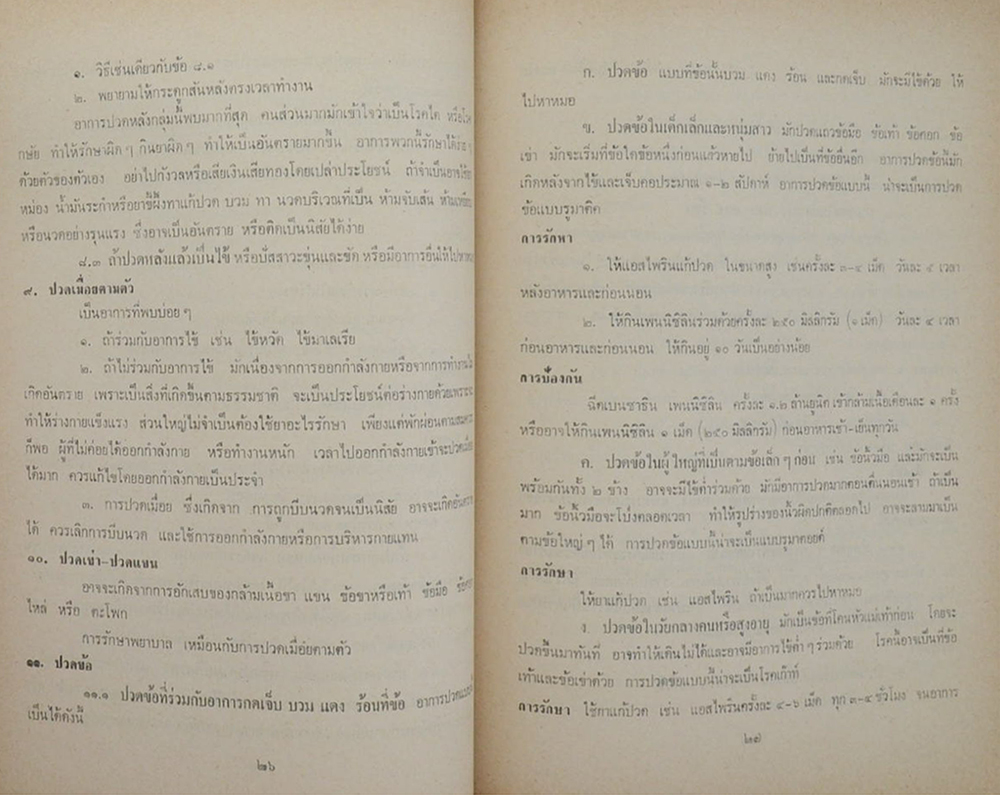 ๑. วิธีเช่นเดียวกับข้อ ๘.๑
๒. พยายามให้กระดูกสันหลังตรงเวลาทำงาน
อาการปวดหลังกลุ่มนี้พบมากที่สุด คนส่วนมากมักเข้าใจว่าเป็นโรคไต หรือโรค
กษัย ทำให้รักษาผิดๆ กินยาผิดๆ ทำให้เป็นอันตรายมากขึ้น อาการพวกนี้รักษาได้ง่าย ๆ
ด้วยตัวของตัวเอง อย่าไปกังวลหรือเสียเงินเสียทองโดยเปล่าประโยชน์ ถ้าจำเป็นอาจใช้ยา
หม่อง น้ำมันระกำหรือยาขี้ผึ้งทาแก้ปวด บวม ทา นวดบริเวณที่เป็น ห้ามจับเส้น
หรือนวดอย่างรุนแรง ซึ่งอาจเป็นอันตราย หรือติดเป็นนิสัยได้ง่าย
๘.๓ ถ้าปวดหลังแล้วเป็นไข้ หรือปัสสาวะขุ่นและขัด หรือมีอาการอื่นให้ไปหาหมอ
๙. ปวดเมื่อยตามตัว
เป็นอาการที่พบบ่อย ๆ
๑. ถ้าร่วมกับอาการไข้ เช่น ไข้หวัด ไข้มาเลเรีย
๒. ถ้าไม่ร่วมกับอาการไข้ มักเนื่องจากการออกกำลังกายหรือจากการทำงาน
เกิดอันตราย เพราะเป็นสิ่งที่เกิดขึ้นตามธรรมชาติ จะเป็นประโยชน์ต่อร่างกายด้วยเพราะ
ทำให้ร่างกายแข็งแรง ส่วนใหญ่ไม่จำเป็นต้องใช้ยาอะไรรักษา เพียงแต่พักผ่อนตามสมควร
ก็พอ ผู้ที่ไม่ค่อยได้ออกกำลังกาย หรือทำงานหนัก เวลาไปออกกำลังกายเข้าจะปวดเมื่อย
ได้มาก ควรแก้ไขโดยออกกำลังกายเป็นประจำ
๓. การปวดเมื่อย ซึ่งเกิดจาก การถูกบีบนวดจนเป็นนิสัย อาจจะเกิดอันตราย
ได้ ควรเลิกการบีบนวด และใช้การออกกำลังกายหรือการบริหารกายแทน
๑๐. ปวดเข่า-ปวดแขน
อาจจะเกิดจากการอักเสบของกล้ามเนื้อขา แขน ข้อขาหรือเท้า ข้อมือ
ไหล่ หรือ ตะโพก
การรักษาพยาบาล เหมือนกับการปวดเมื่อยตามตัว
๑๑. ปวดข้อ
๑๑.๑ ปวดข้อที่ร่วมกับอาการกดเจ็บ บวม แดง ร้อนที่ข้อ อาการปวดแบบนี้
เป็นได้ดังนี้
๒๖
ก. ปวดข้อ แบบที่ข้อนั้นบวม แดง ร้อน และกดเจ็บ มักจะมีไข้ด้วย ให้
ไปหาหมอ
ข. ปวดข้อในเด็กเล็กและหนุ่มสาว มักปวดแถวข้อมือ ข้อเท้า ข้อศอก ข้อ
เข่า มักจะเริ่มที่ข้อใดข้อหนึ่งก่อนแล้วหายไป ย้ายไปเป็นที่ข้ออื่นอีก อาการปวดข้อนี้มัก
เกิดหลังจากไข้และเจ็บคอประมาณ ๑-๒ สัปดาห์ อาการปวดข้อแบบนี้ น่าจะเป็นการปวด
ข้อแบบรูมาติค
การรักษา
๑. ให้แอสไพรินแก้ปวด ในขนาดสูง เช่นครั้งละ ๓-๔ เม็ด วันละ ๔ เวลา
หลังอาหารและก่อนนอน
๒. ให้กินเพนนิซิลินร่วมด้วยครั้งละ ๒๕๐ มิลลิกรัม (๑ เม็ด) วันละ ๔ เวลา
ก่อนอาหารและก่อนนอน ให้กินอยู่ ๑๐ วันเป็นอย่างน้อย
การป้องกัน
ฉีดเบนซาธิน เพนนิซิลิน ครั้งละ ๑.๒ ล้านยูนิต เข้ากล้ามเนื้อเดือนละ ๑ ครั้ง
หรืออาจให้กินเพนนิซิลิน ๑ เม็ด (๒๕๐ มิลลิกรัม) ก่อนอาหารเช้า-เย็นทุกวัน
ค. ปวดข้อในผู้ใหญ่ที่เป็นตามข้อเล็ก ๆ ก่อน เช่น ข้อนิ้วมือ และมักจะเป็น
พร้อมกันทั้ง ๒ ข้าง อาจจะมีไข้ต่ำร่วมด้วย มักมีอาการปวดมากตอนตื่นนอนเช้า ถ้าเป็น
มาก ข้อนิ้วมือจะโป่งตลอดเวลา ทำให้รูปร่างของนิ้วผิดปกติตลอดไป อาจจะลามมาเป็น
ตามข้อใหญ่ ๆ ได้ การปวดข้อแบบนี้น่าจะเป็นแบบรูมาตอยด์
การรักษา
ให้ยาแก้ปวด เช่น แอสไพริน ถ้าเป็นมากควรไปหาหมอ
ง. ปวดข้อในวัยกลางคนหรือสูงอายุ มักเป็นข้อที่โคนหัวแม่เท้าก่อน โดยจะ
ปวดขึ้นมาทันที อาจทำให้เดินไม่ได้และอาจมีอาการไข้ต่ำ ๆ ร่วมด้วย โรคนี้อาจเป็นที่ข้อ
เท้าและข้อเข่าด้วย การปวดข้อแบบนี้น่าจะเป็นโรคเก๊าท์
การรักษา ใช้ยาแก้ปวด เช่น แอสไพรินครั้งละ ๔-๖ เม็ด ทุก ๓-๔ ชั่วโมง จนอาการ
๒๗